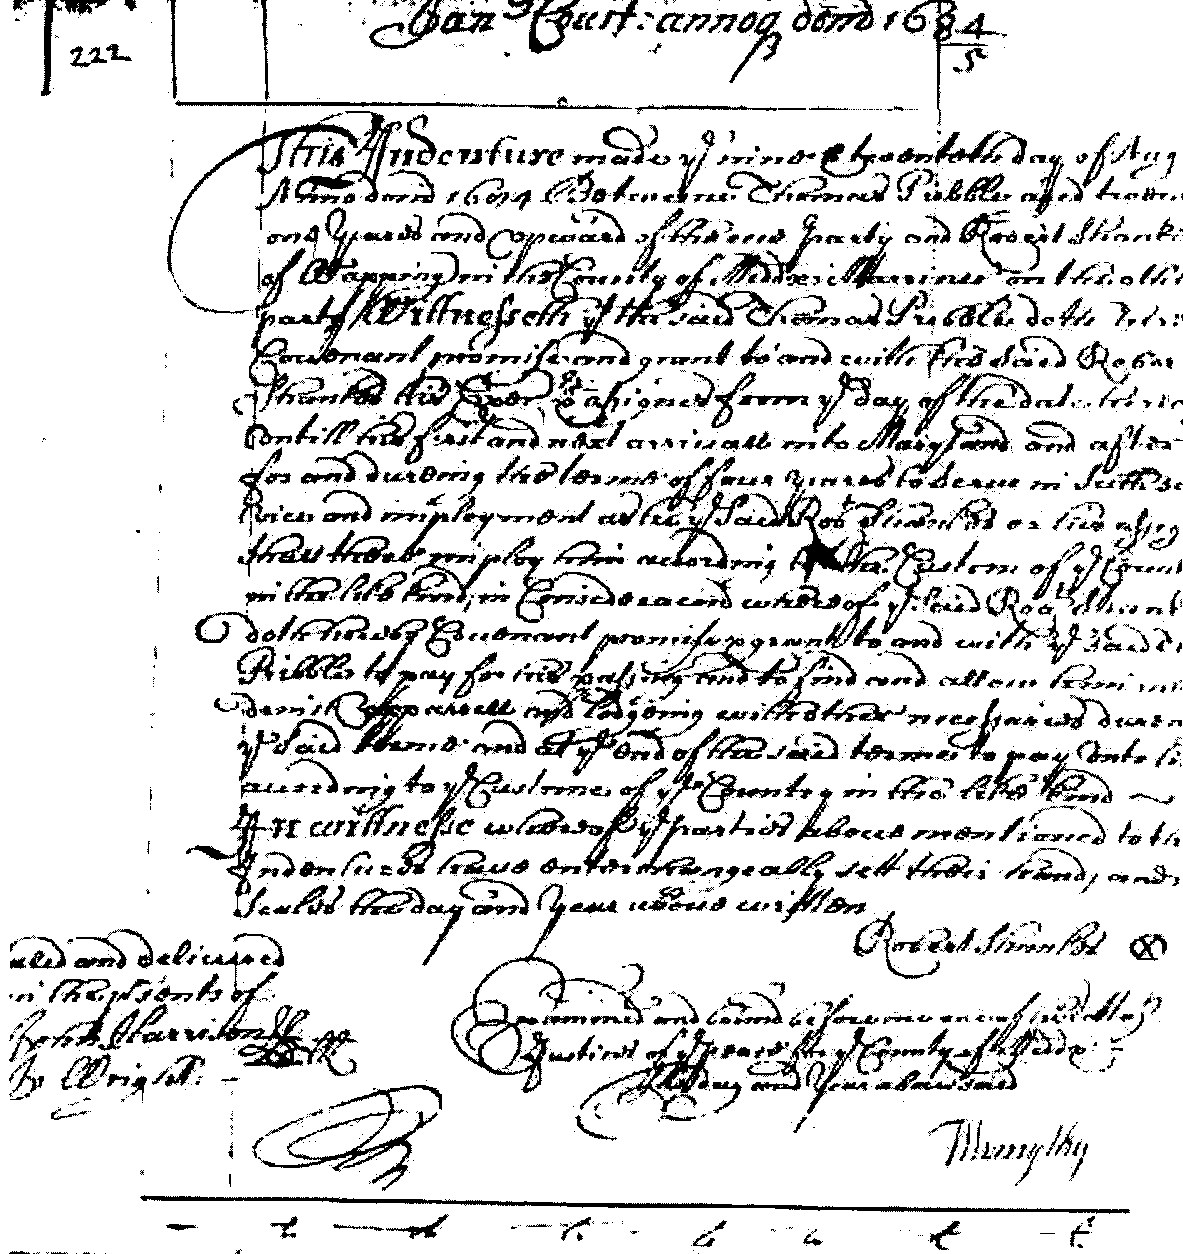 Jan Court: annoq domi 1684/5
222
This Indenture made ye nine & twentieth day of Aug
Annodomi 1684 Betweene Thomas Pribble aged twen
one yeares and upward of the one party and Robert Shanks
of Wapping in the County of Middx: Marriner on the othe
party Wittnesseth yt the said Thomas Pribble doth
Couenant promise and grant to and with the said Rober
Shankes his Exer & assignes from ye day of the date here
untill his first and next arrivall into Maryland and after
for and dureing the terme of four yeares to serve in such se
vice and imployment as he ye said Robt Shankes or his assig
shall there imploy him according to the Custom of ye Count
in the like kind, in Consideracond whereof ye said Robt Shank
doth hereby Couenant promise & grant to and with ye said
Pribble to pay for his passing and to find and allow him m
drink apparell and lodgeing with other necessaries dure
ye said terme and at ye end of the said terme to pay unto hi
according to ye Custome of ye Country in the like kind
In wittnesse whereof ye parties above mentioned to th
Indentures have enterchangeably sett their hand, and
Seales the day and Year above written
Robert Shankes
aled and delivered
in the psents of
John Harrison
Wright
Examined and bound before me one of his Matys
Justices of ye peace for ye County of Middx
the day and Year abovesaid